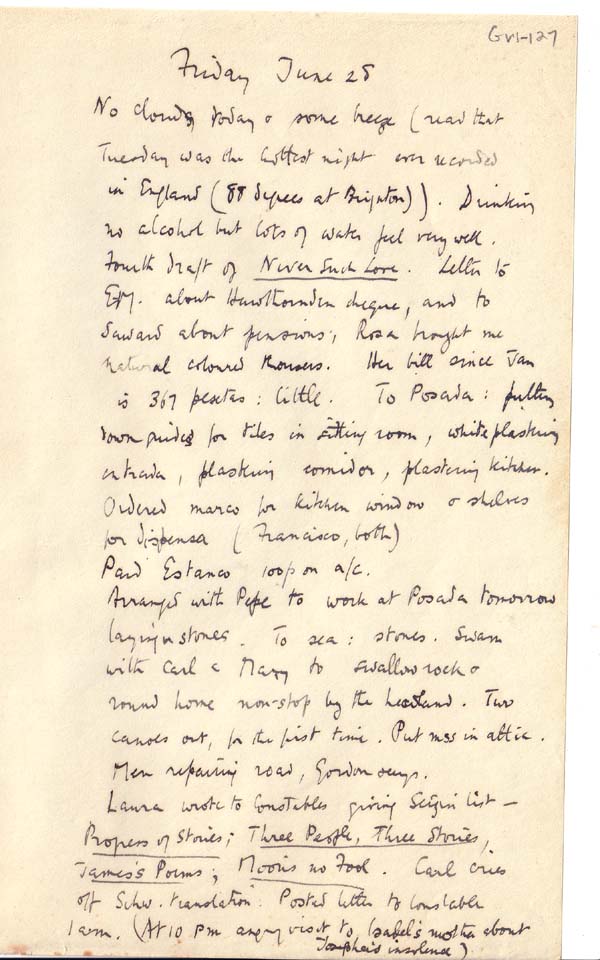 GVI-127
Friday June 28
No clouds today & some breeze (read that
Tuesday was the hottest night ever recorded
in England (88 degrees at Brighton)). Drinking
no alcohol but lots of water feel very well.
Fourth draft of Never Such Love. Letter to
about Hawthornden cheque, and to
Saward about pensions; Rosa brought me
natural coloured trousers. Her bill since Jan
is 367 pesetas: little. To Posada: putting
down for tiles in sitting room, white plastering
entrada, plastering corridor, plastering kitchen.
Ordered marco for kitchen window & shelves
for dispensa (Francisco, both)
Paid Estanco 100p on a/c.
Arranged with Pepe to work at Posada tomorrow
laying in stones. To sea: stones. Swam
with Carl & Mary to swallow rock &
round home non-stop by the headland. Two
canoes out, for the first time. Put mss in attic.
Men repairing road, Gordon says.
Laura wrote to Constables giving Seizin list —
Progress of Stories; Three People, Three Stories,
James's Poems; Moon's no Fool. Carl cries
off Schw. translation. Posted letter to Constable
1 a.m. (At 10 pm angry visit to Isabel's mother about
Josepha's insolence)